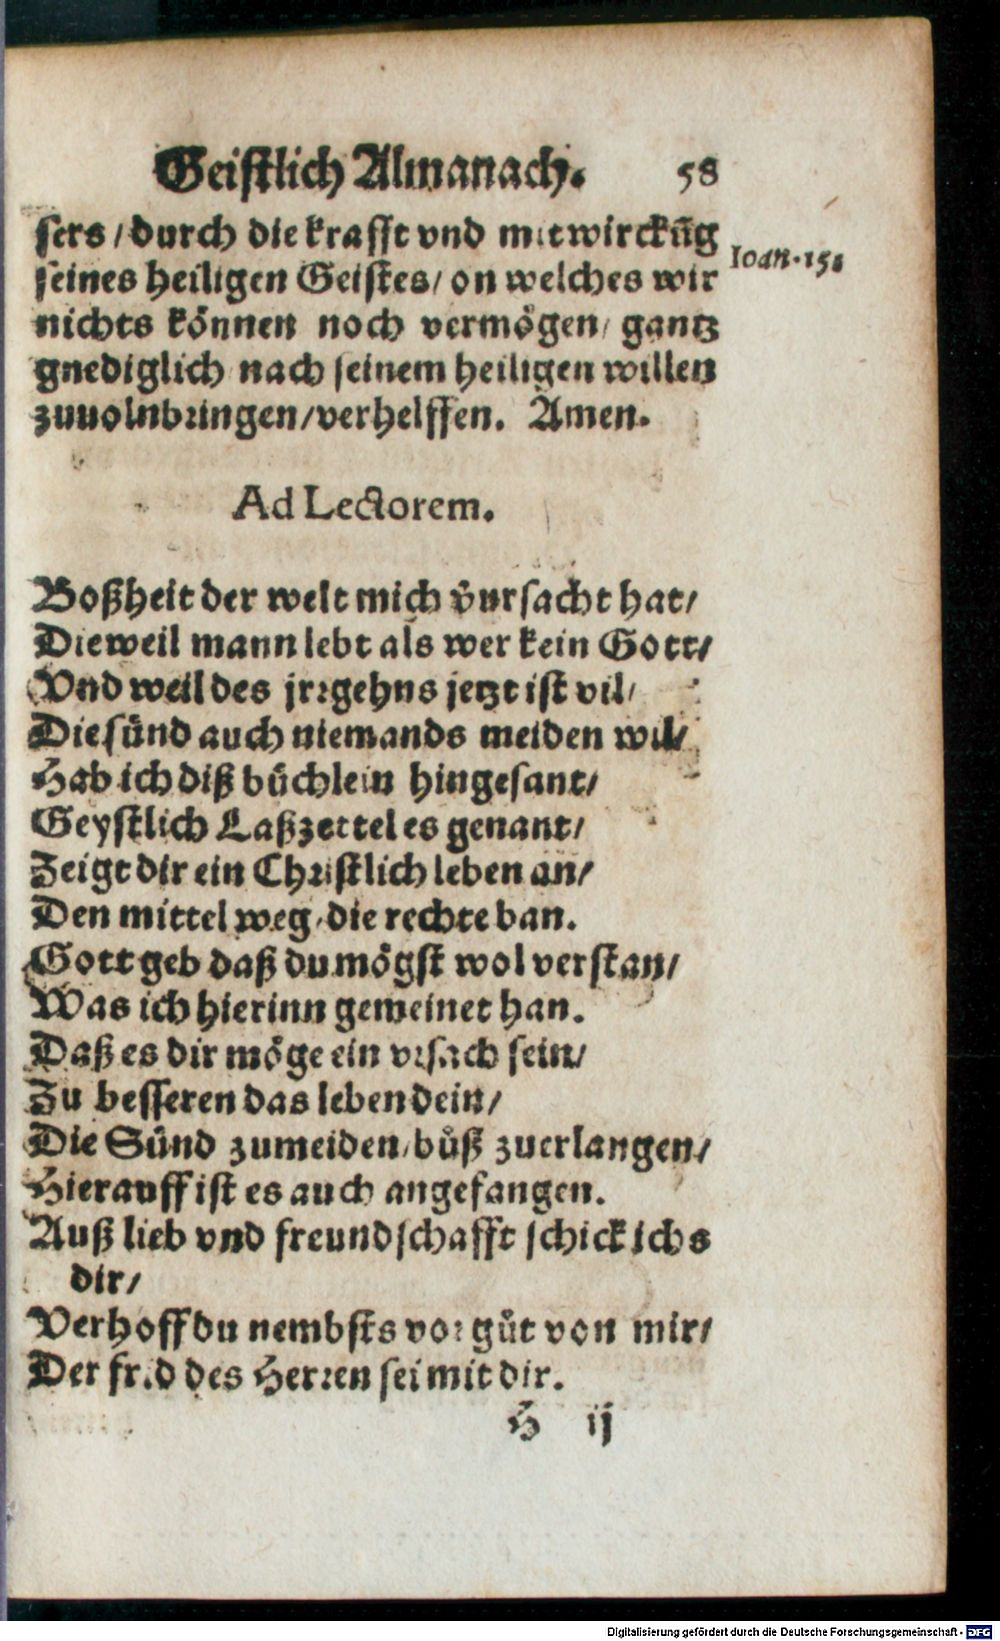 Geistlich Almanach. 58
sers / durch die krafft vnd mitwirckũg
seines heiligen Geistes / on welches wir
Ioan. 15.
nichts können noch vermögen / gantz
gnediglich nach seinem heiligen willen
zuuolnbringen / verhelffen. Amen.
Ad Lectorem.
Boßheit der welt mich vͦrsacht hat /
Dieweil mann lebt als wer kein Gott /
Vnd weil des jrregehns jetzt ist vil /
Die sünd auch niemands meiden wil /
Hab ich diß büchlein hingesant /
Geystlich Laßzettel es genant /
Zeigt dir ein Christlich leben an /
Den mittel weg / die rechte ban.
Gott geb daß du mögst wol verstan /
Was ich hierinn gemeinet han.
Daß es dir möge ein vrsach sein /
Zu besseren das leben dein /
Die Sünd zumeiden / bůß zuerlangen /
Hierauff ist es auch angefangen.
Auß lieb vnd freundschafft schick ichs
dir /
Verhoff du nembsts vor gůt von mir /
Der frid des Herren sei mit dir.
H ij
Digitalisierung gefördert durch die Deutsche Forschungsgemeinschaft - DFG